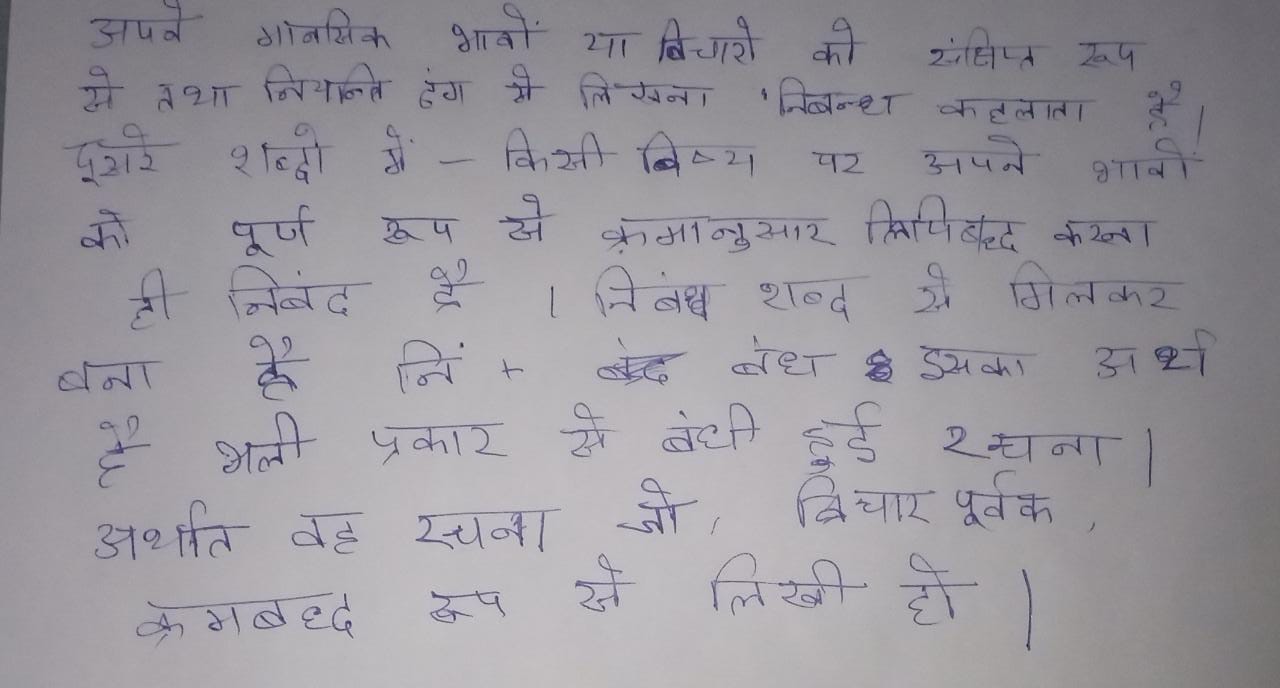 अपने मानसिक भावों या विचारो को संक्षिप्त रूप
से तथा नियान्ति ढंग से लिखना 'निबन्ध कहलाता है।
दूसरे शब्दो में – किसी विषय पर अपने भावों
को पूर्ण रूप से क्रमानुसार लिपिबद्द करना
ही निबंद है । निबंध शब्द से मिलकर
बना है निं + बंध इसका अर्थ
है भली प्रकार से बंधी हुई रचना।
अर्थात वह रचना जो, विचार पूर्वक,
क्रमबद्द रूप से लिखी हो।